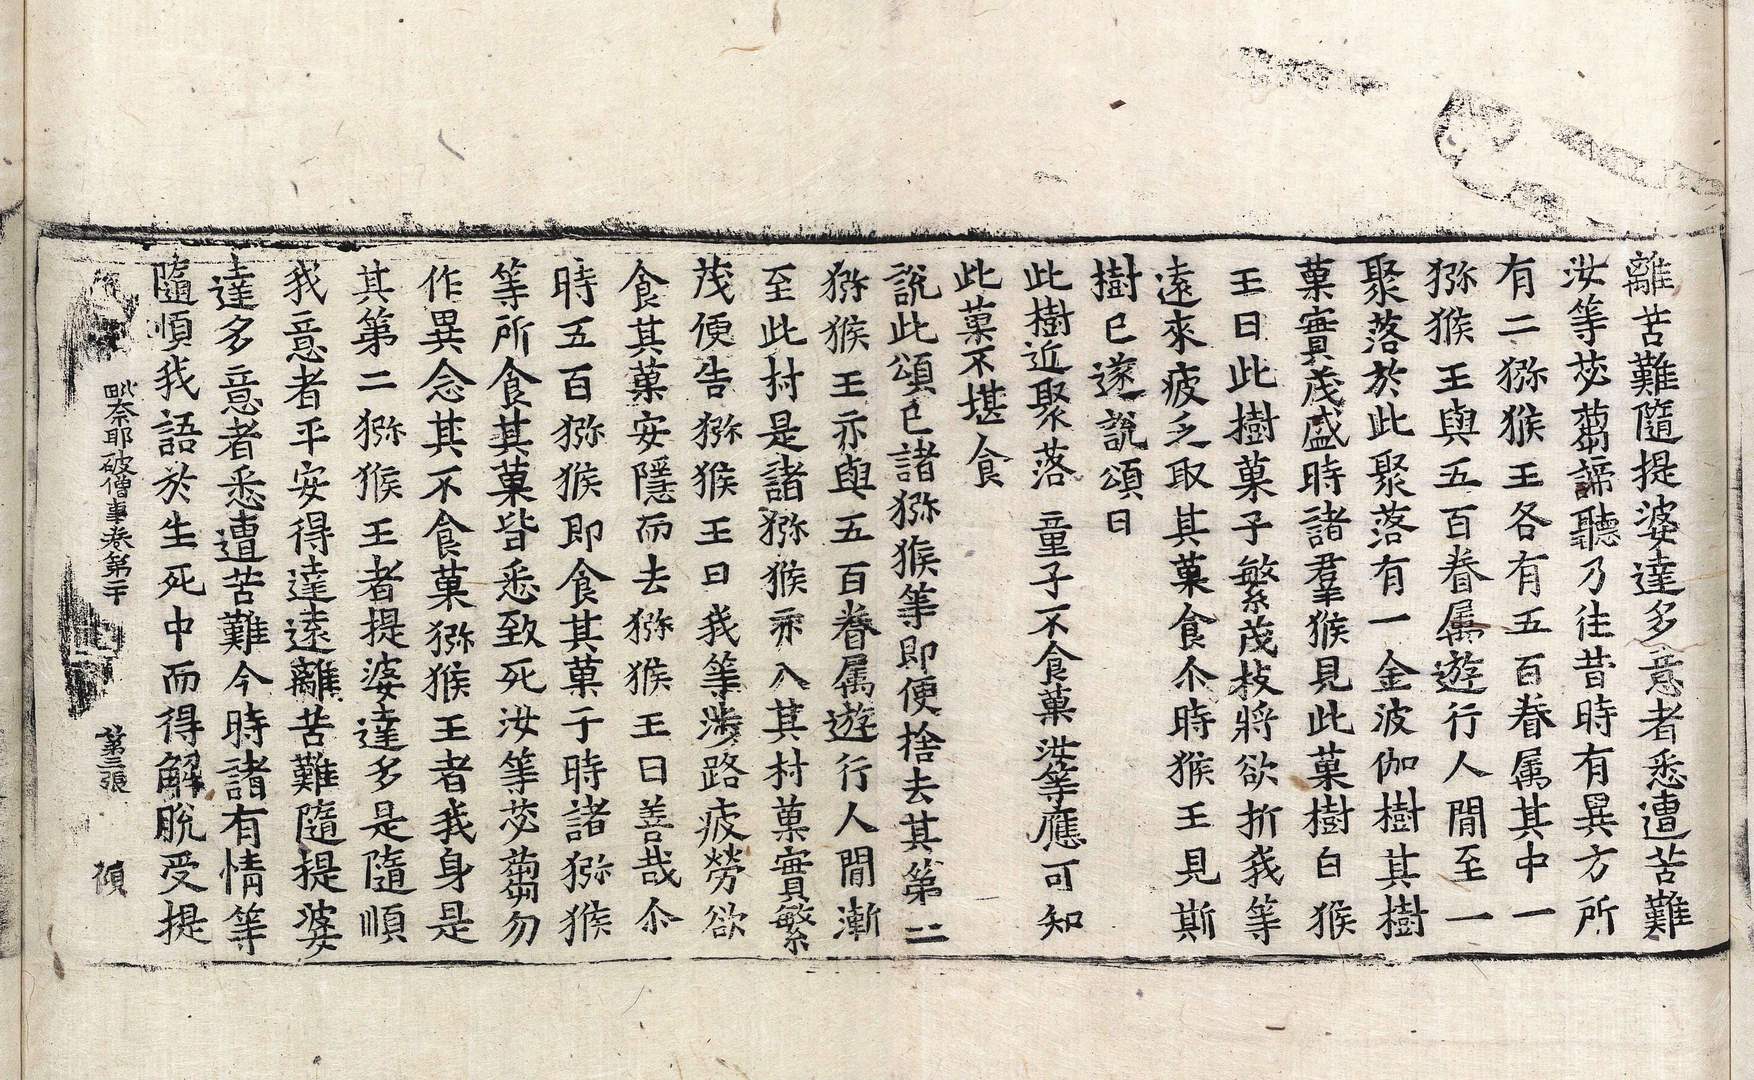 離苦難隨提婆達多意者悉遭苦難
汝等苾蒭諦聽乃往昔時有異方所
有二猕猴王各有五百眷属其中一
猕猴王與五百眷属遊行人間至一
聚落於此聚落有一金波伽樹其樹
菓實茂盛時諸羣猴見此菓樹白猴
王曰此樹菓子繁茂枝將欲折我等
遠來疲乏取其菓食尒時猴王見斯
樹已遂說頌曰
此樹近聚落　童子不食菓　汝等應可知
此菓不堪食
說此頌已諸猕猴等即便捨去其第二
猕猴王亦與五百眷属遊行人間漸
至此村是諸猕猴亦入其村菓實繁
茂便告猕猴王曰我等涉路疲勞欲
食其菓安隱而去猕猴王曰善哉尒
時五百猕猴即食其菓于時諸猕猴
等所食其菓皆悉致死汝等苾蒭勿
作異念其不食菓猕猴王者我身是
其第二猕猴王者提婆達多是隨順
我意者平安得達遠離苦難隨提婆
達多意者悉遭苦難今時諸有情等
隨順我語於生死中而得解脫受提
毗奈耶破僧事卷第二十　第三張　禎